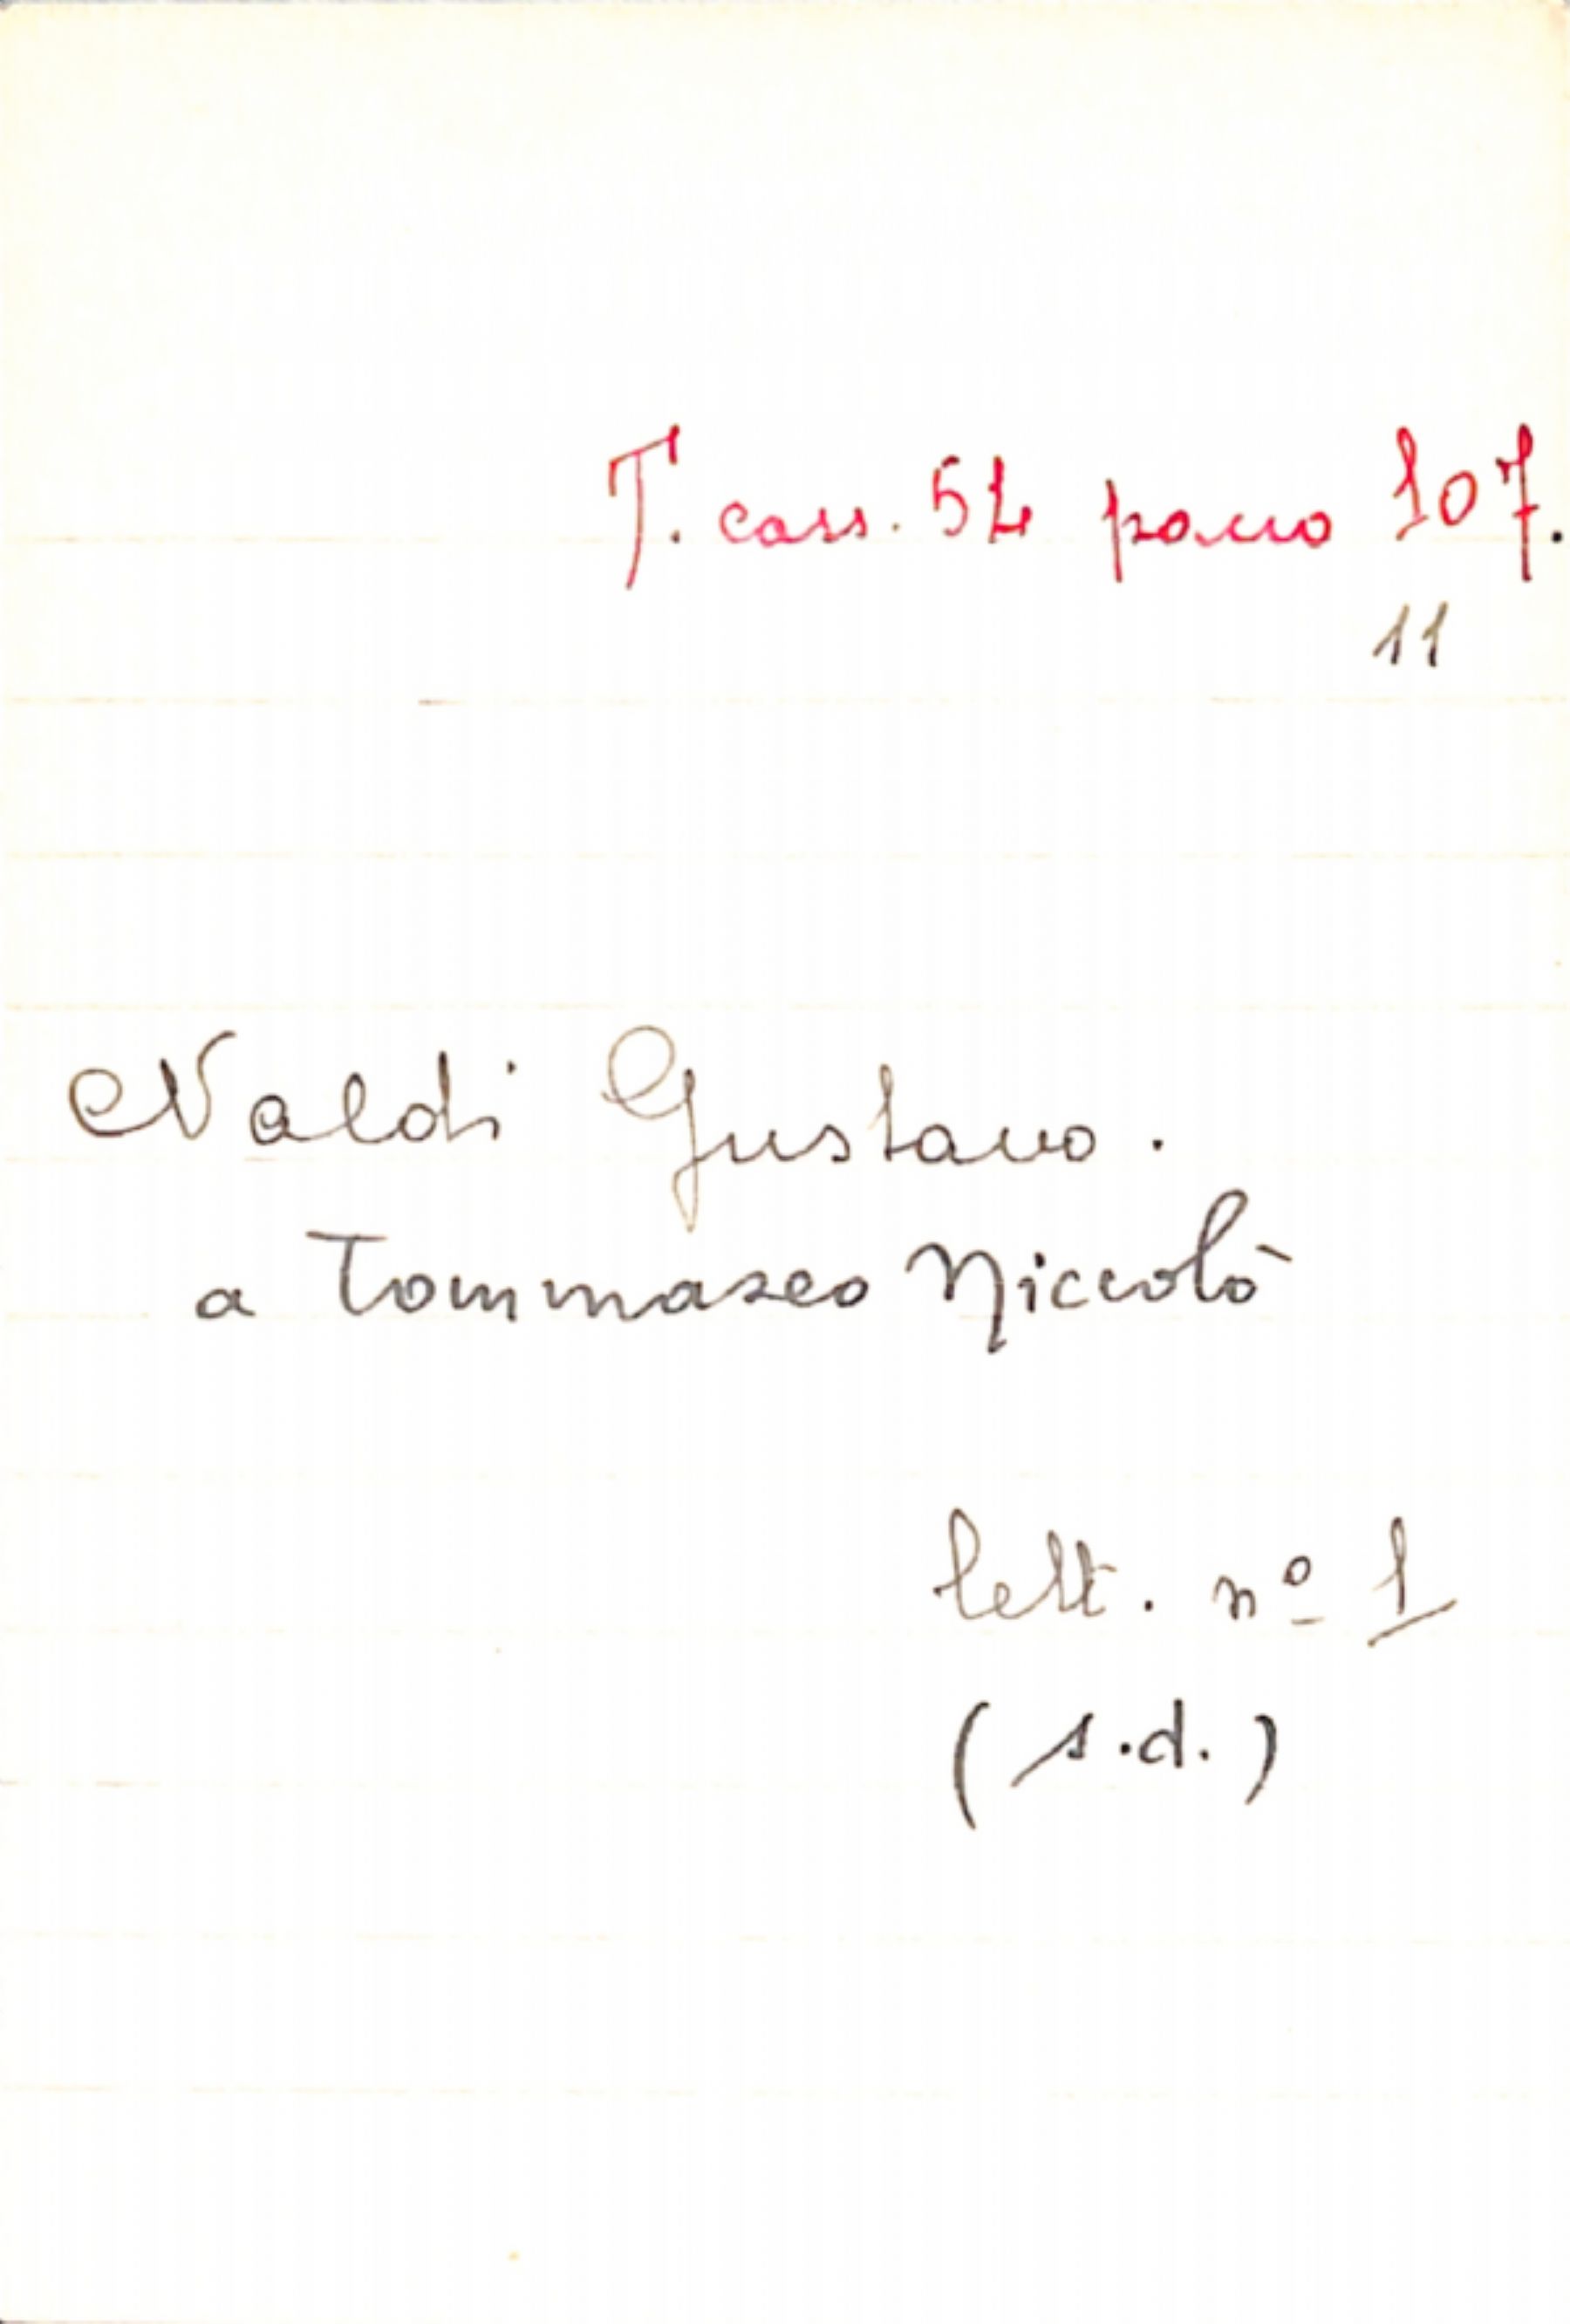 T. cass. 54 pacco 107.
11
Naldi Gustavo.
a Tommaseo Niccolò
lett. nº 1
(s.d.)